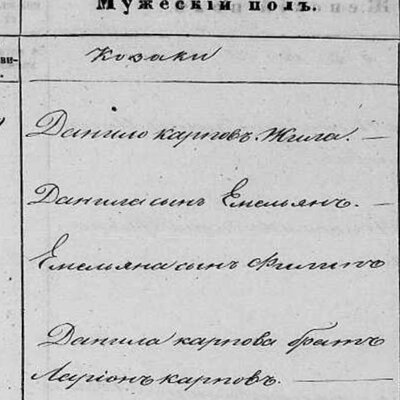 Мужескій полъ.
Козаки
Данило карповъ Жила. —
Данила сынъ Емельянъ. —
Емельяна сынъ Филипъ
Данила карпова братъ
Ларіонъ карповъ. —